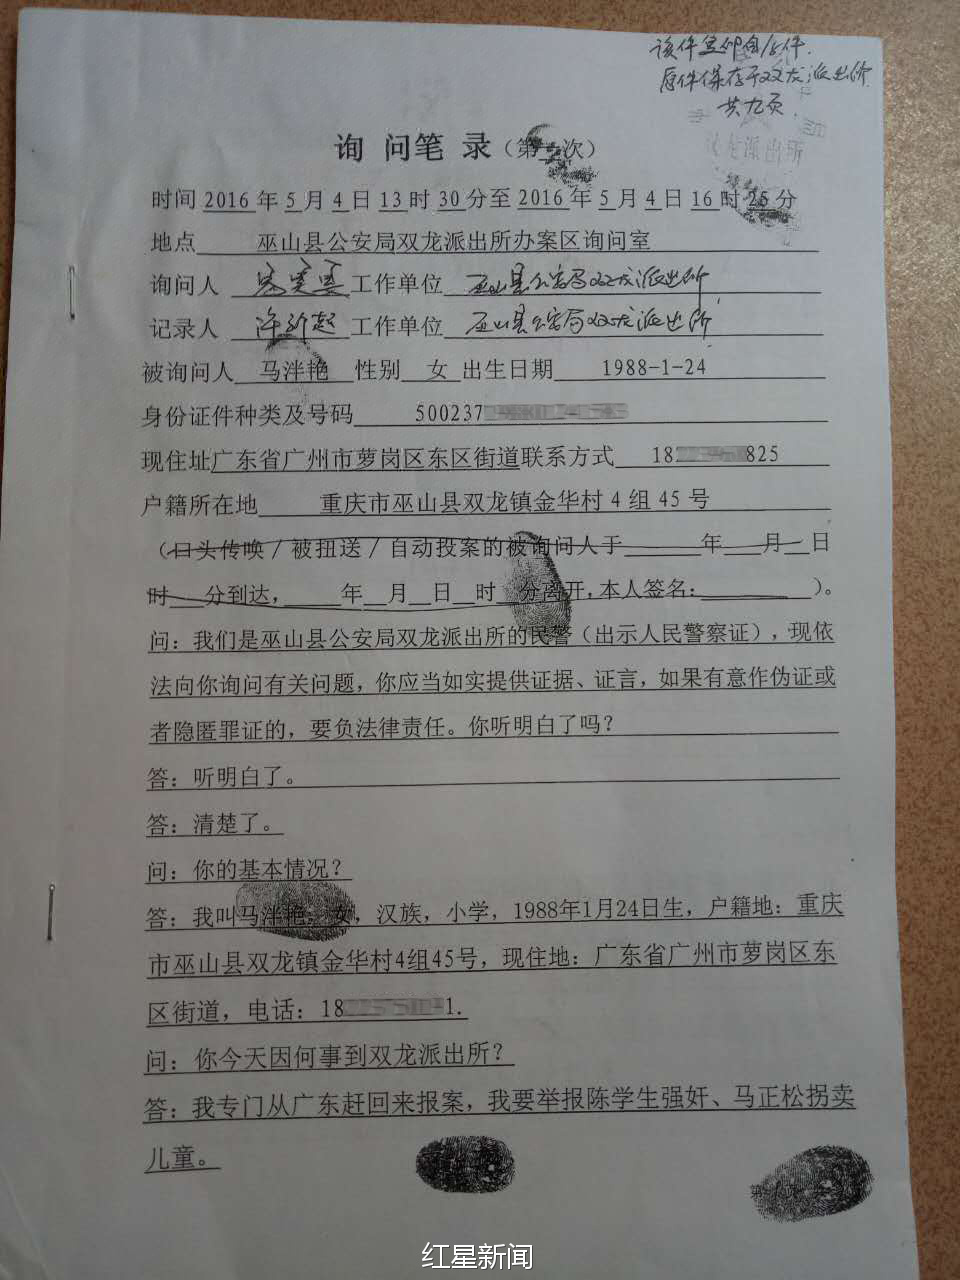 该件复印自原件.
原件保存于双龙派出所
共九页.
双龙派出所
询问笔录（第一次）
时间 2016 年 5 月 4 日 13 时 30 分至 2016 年 5 月 4 日 16 时 25 分
地点 巫山县公安局双龙派出所办案区询问室
询问人 工作单位 巫山县公安局双龙派出所
记录人 工作单位 巫山县公安局双龙派出所
被询问人 马泮艳 性别 女 出生日期 1988-1-24
身份证件种类及号码 500237
现住址 广东省广州市萝岗区东区街道 联系方式 18 825
户籍所在地 重庆市巫山县双龙镇金华村 4 组 45 号
（口头传唤／被扭送／自动投案的被询问人于 年 月 日
时 分到达， 年 月 日 时 分离开，本人签名： ）。
问：我们是巫山县公安局双龙派出所的民警（出示人民警察证），现依
法向你询问有关问题，你应当如实提供证据、证言，如果有意作伪证或
者隐匿罪证的，要负法律责任。你听明白了吗？
答：听明白了。
答：清楚了。
问：你的基本情况？
答：我叫马泮艳，女，汉族，小学，1988年1月24日生，户籍地：重庆
市巫山县双龙镇金华村4组45号，现住地：广东省广州市萝岗区东
区街道，电话：18 1.
问：你今天因何事到双龙派出所？
答：我专门从广东赶回来报案，我要举报陈学生强奸、马正松拐卖
儿童。
红星新闻